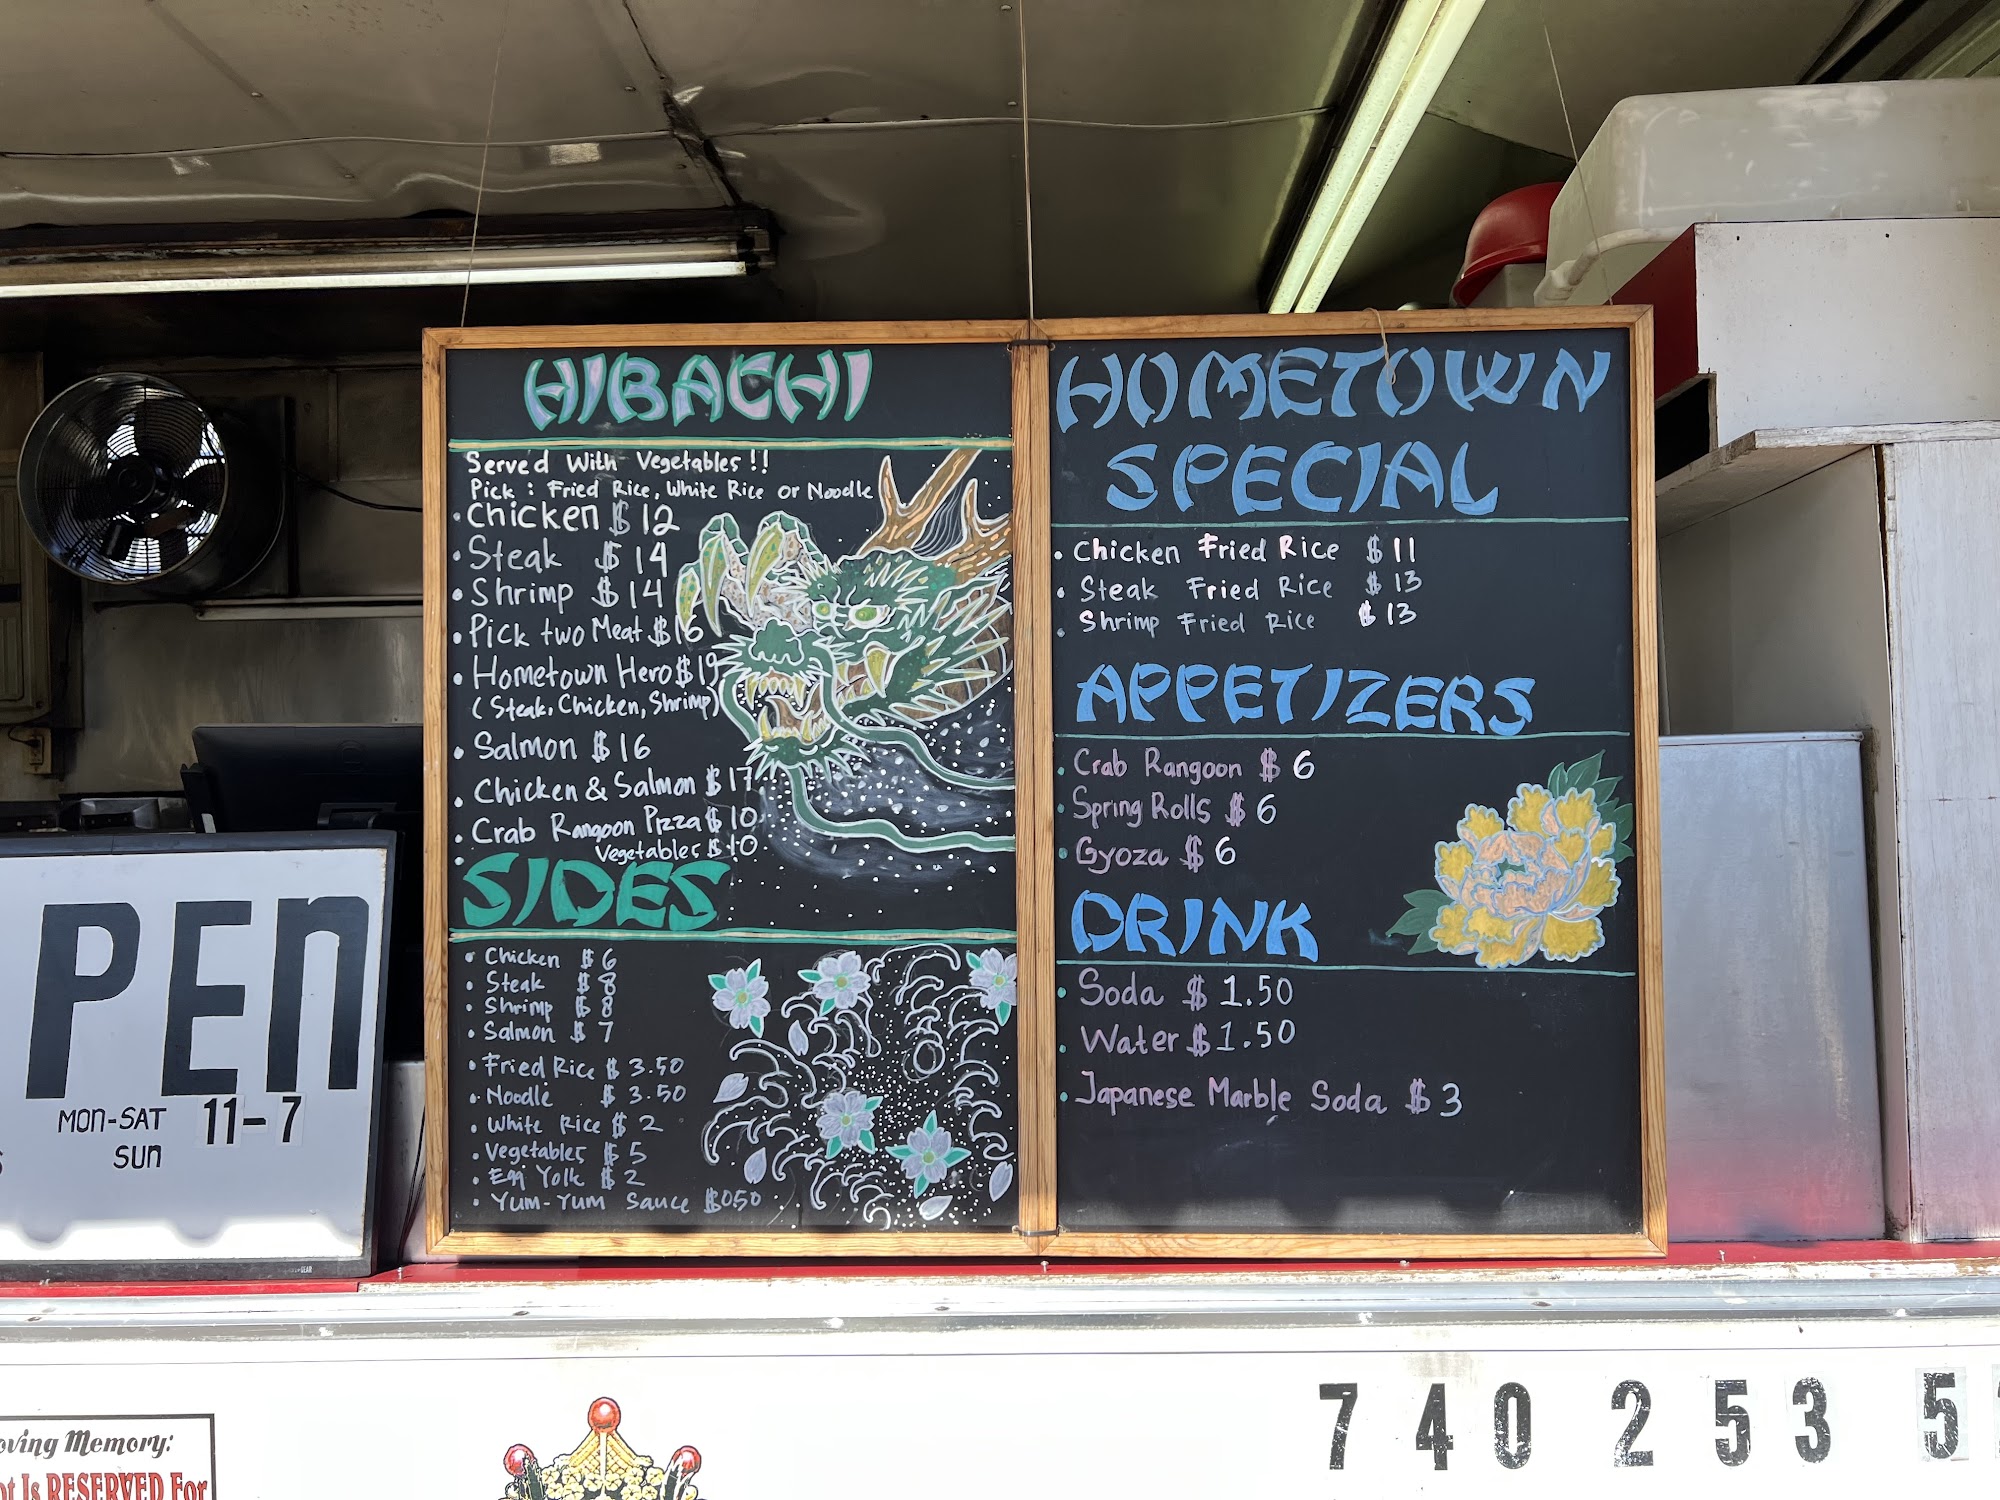 HIBACHI
Served With Vegetables!!
Pick : Fried Rice, White Rice or Noodle
Chicken $ 12
Steak $ 14
Shrimp $ 14
Pick two Meat $16
Hometown Hero $19
(Steak, Chicken, Shrimp)
Salmon $ 16
Chicken & Salmon $ 17
Crab Rangoon Pizza $ 10
Vegetables $ 10
SIDES
Chicken $ 6
Steak $ 8
Shrimp $ 8
Salmon $ 7
Fried Rice $ 3.50
Noodle $ 3.50
White Rice $ 2
Vegetables $ 5
Egg Yolk $ 2
Yum-Yum Sauce $0.50
HOMETOWN
SPECIAL
Chicken Fried Rice $ 11
Steak Fried Rice $ 13
Shrimp Fried Rice $ 13
APPETIZERS
Crab Rangoon $ 6
Spring Rolls $ 6
Gyoza $ 6
DRINK
Soda $ 1.50
Water $ 1.50
Japanese Marble Soda $ 3
PEN
MON-SAT 11-7
SUN
Memory:
Is RESERVED For
740 253 5